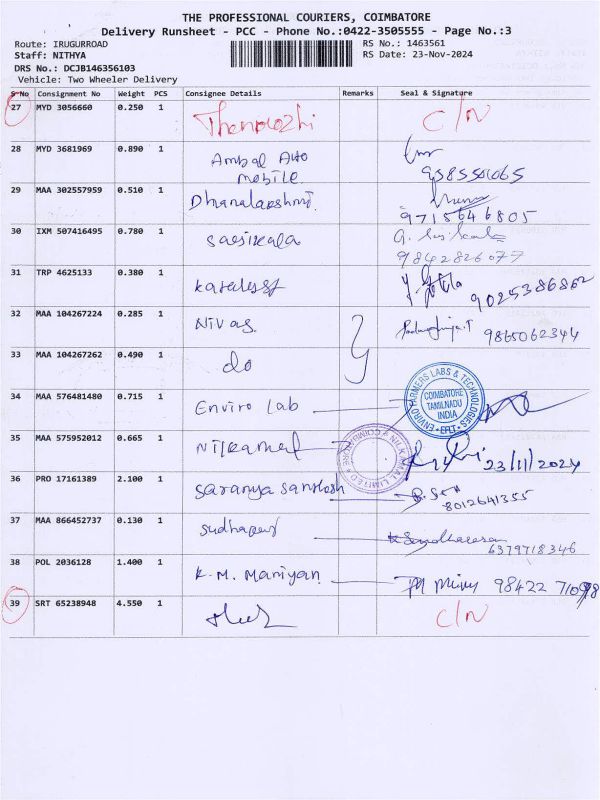 THE PROFESSIONAL COURIERS, COIMBATORE
Delivery Runsheet - PCC - Phone No.:0422-3505555 - Page No.:3
Route: IRUGURROAD RS No.: 1463561
Staff: NITHYA RS Date: 23-Nov-2024
DRS No.: DCJB146356103
Vehicle: Two Wheeler Delivery
S No Consignment No Weight PCS Consignee Details Remarks Seal & Signature
27 MYD 3056660 0.250 1 C/N
28 MYD 3681969 0.890 1 Ambal Auto
mobile
29 MAA 302557959 0.510 1 Dhanalakshmi
9715646805
30 IXM 507416495 0.780 1 Sasikala
9842826077
31 TRP 4625133 0.380 1
9025386862
32 MAA 104267224 0.285 1 Nivas 9865062344
33 MAA 104267262 0.490 1 do
34 MAA 576481480 0.715 1 Enviro Lab
ENVIRO FARMERS LABS & TECHNOLOGIES
COIMBATORE
TAMILNADU
INDIA
EFLT
35 MAA 575952012 0.665 1 Nilkamal 23/11/2024
NILKAMAL LIMITED
COIMBATORE
36 PRO 17161389 2.100 1 Saranya Santhosh
8012641355
37 MAA 866452737 0.130 1
6379718346
38 POL 2036128 1.400 1 K.M. Maniyan
39 SRT 65238948 4.550 1 C/N